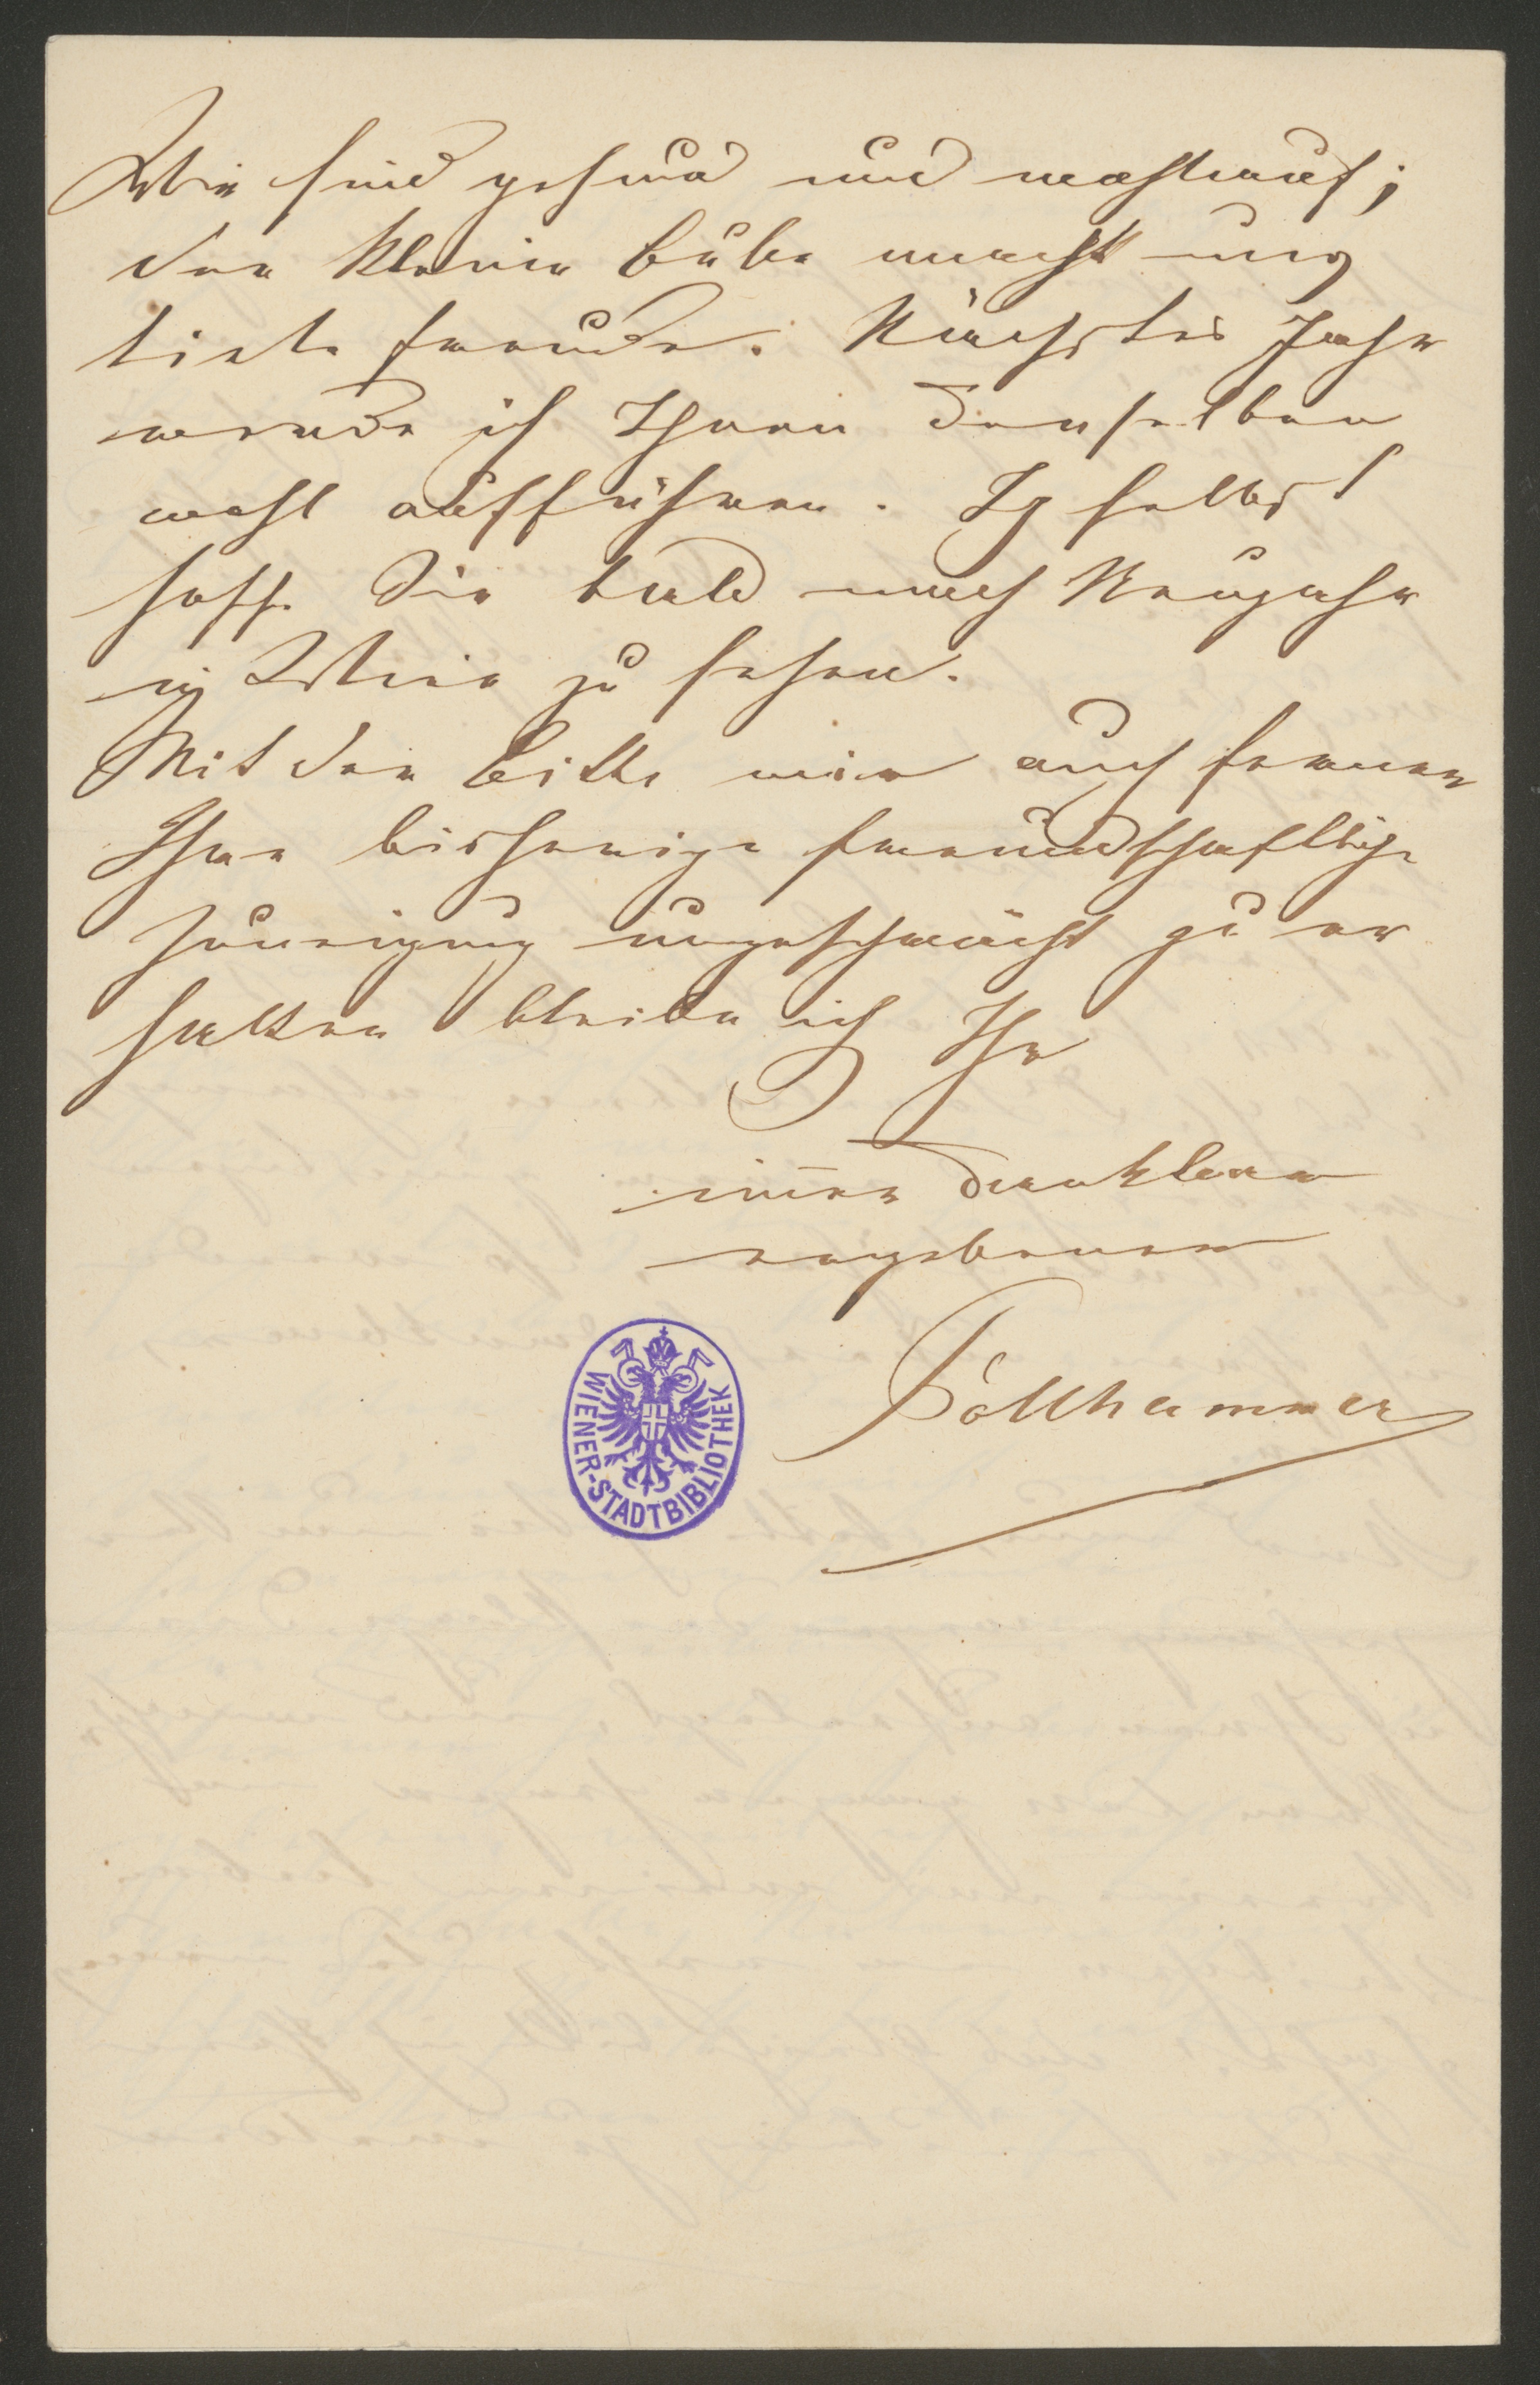 Wir sind gesund und wohlauf;
der kleine Bube macht uns
viele Freude. Nächstes Jahr
werde ich Ihnen denselben
wohl aufführen. Ich selbst
hoffe Sie bald nach Neujahr
in Wien zu sehen.
Mit der Bitte mir auch ferner
Ihre bisherige freundschaftliche
Zuneigung ungeschwächt zu er
halten bleibe ich Ihr
im̄er dankbar
ergebener
Pöllhammer
WIENER-STADTBIBLIOTHEK